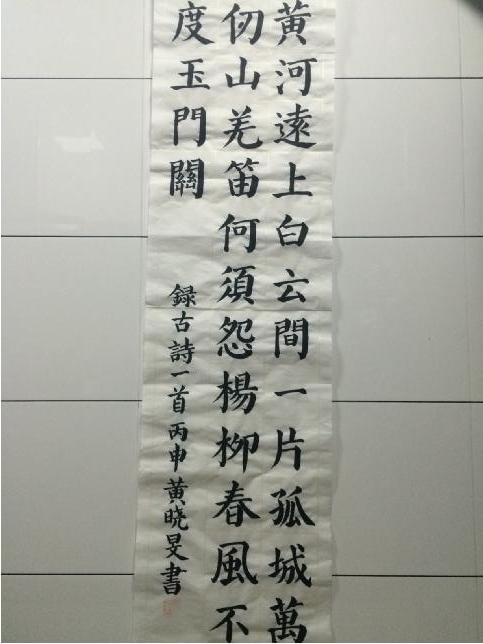 黃河遠上白云間一片孤城萬
仞山羌笛何須怨楊柳春風不
度玉門關
録古詩一首丙申黄晓旻書